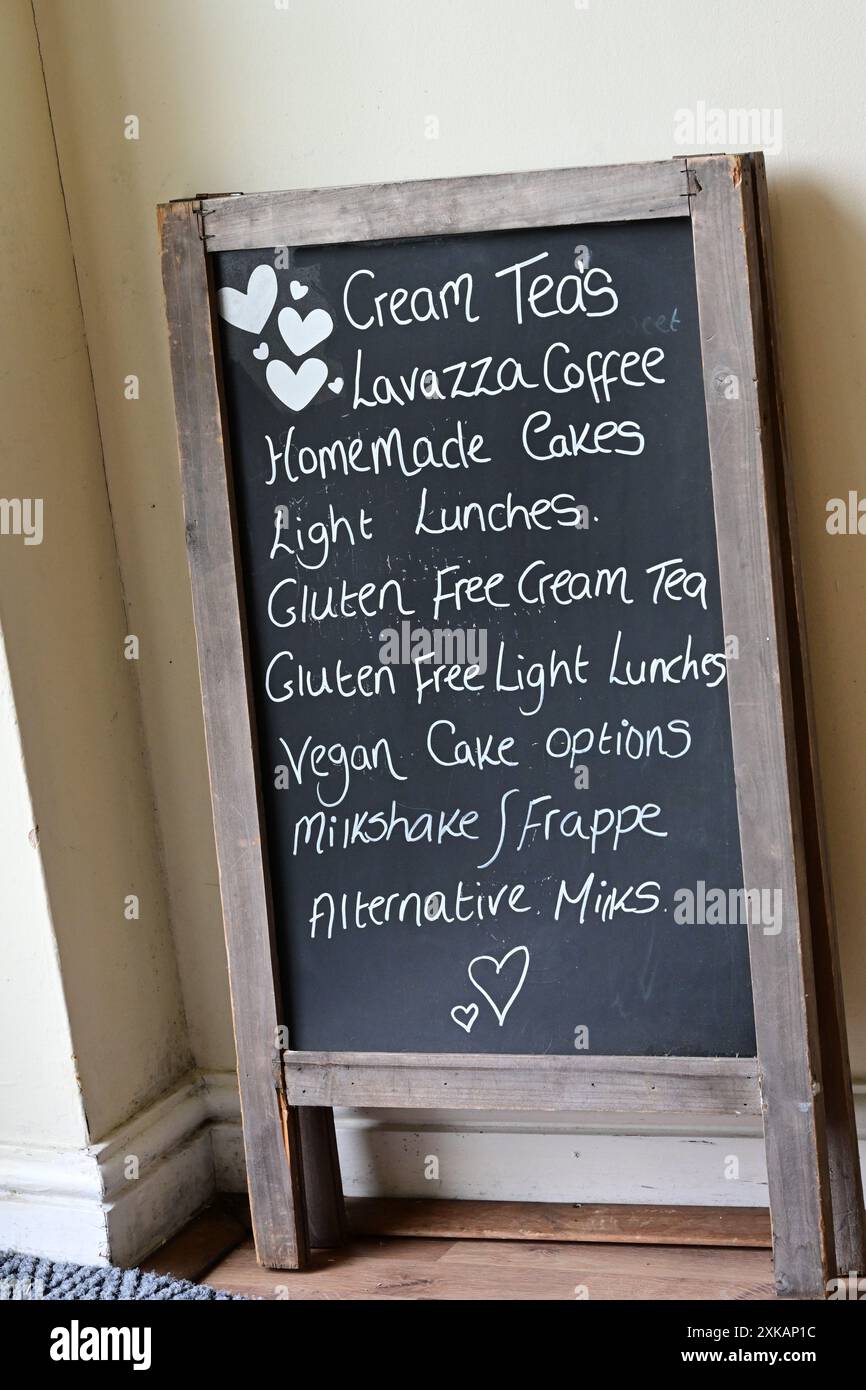 Cream Tea's
Lavazza Coffee
Homemade Cakes
Light Lunches.
Gluten Free Cream Tea
Gluten Free Light Lunches
Vegan Cake options
Milkshake / Frappe
Alternative Milks.
alamy
Image ID: 2XKAP1C
www.alamy.com